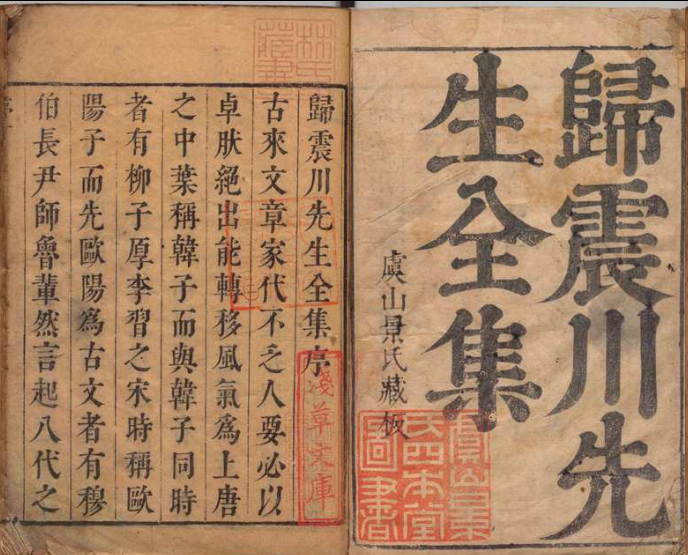 歸震川先
生全集
虞山景氏藏板
虞山景
氏四本堂
圖書
林氏
藏書
歸震川先生全集序
淺草文庫
古來文章家代不乏人要必以
卓肰絕出能轉移風氣爲上唐
之中葉稱韓子而與韓子同時
者有柳子厚李習之宋時稱歐
陽子而先歐陽爲古文者有穆
伯長尹師魯輩然言起八代之